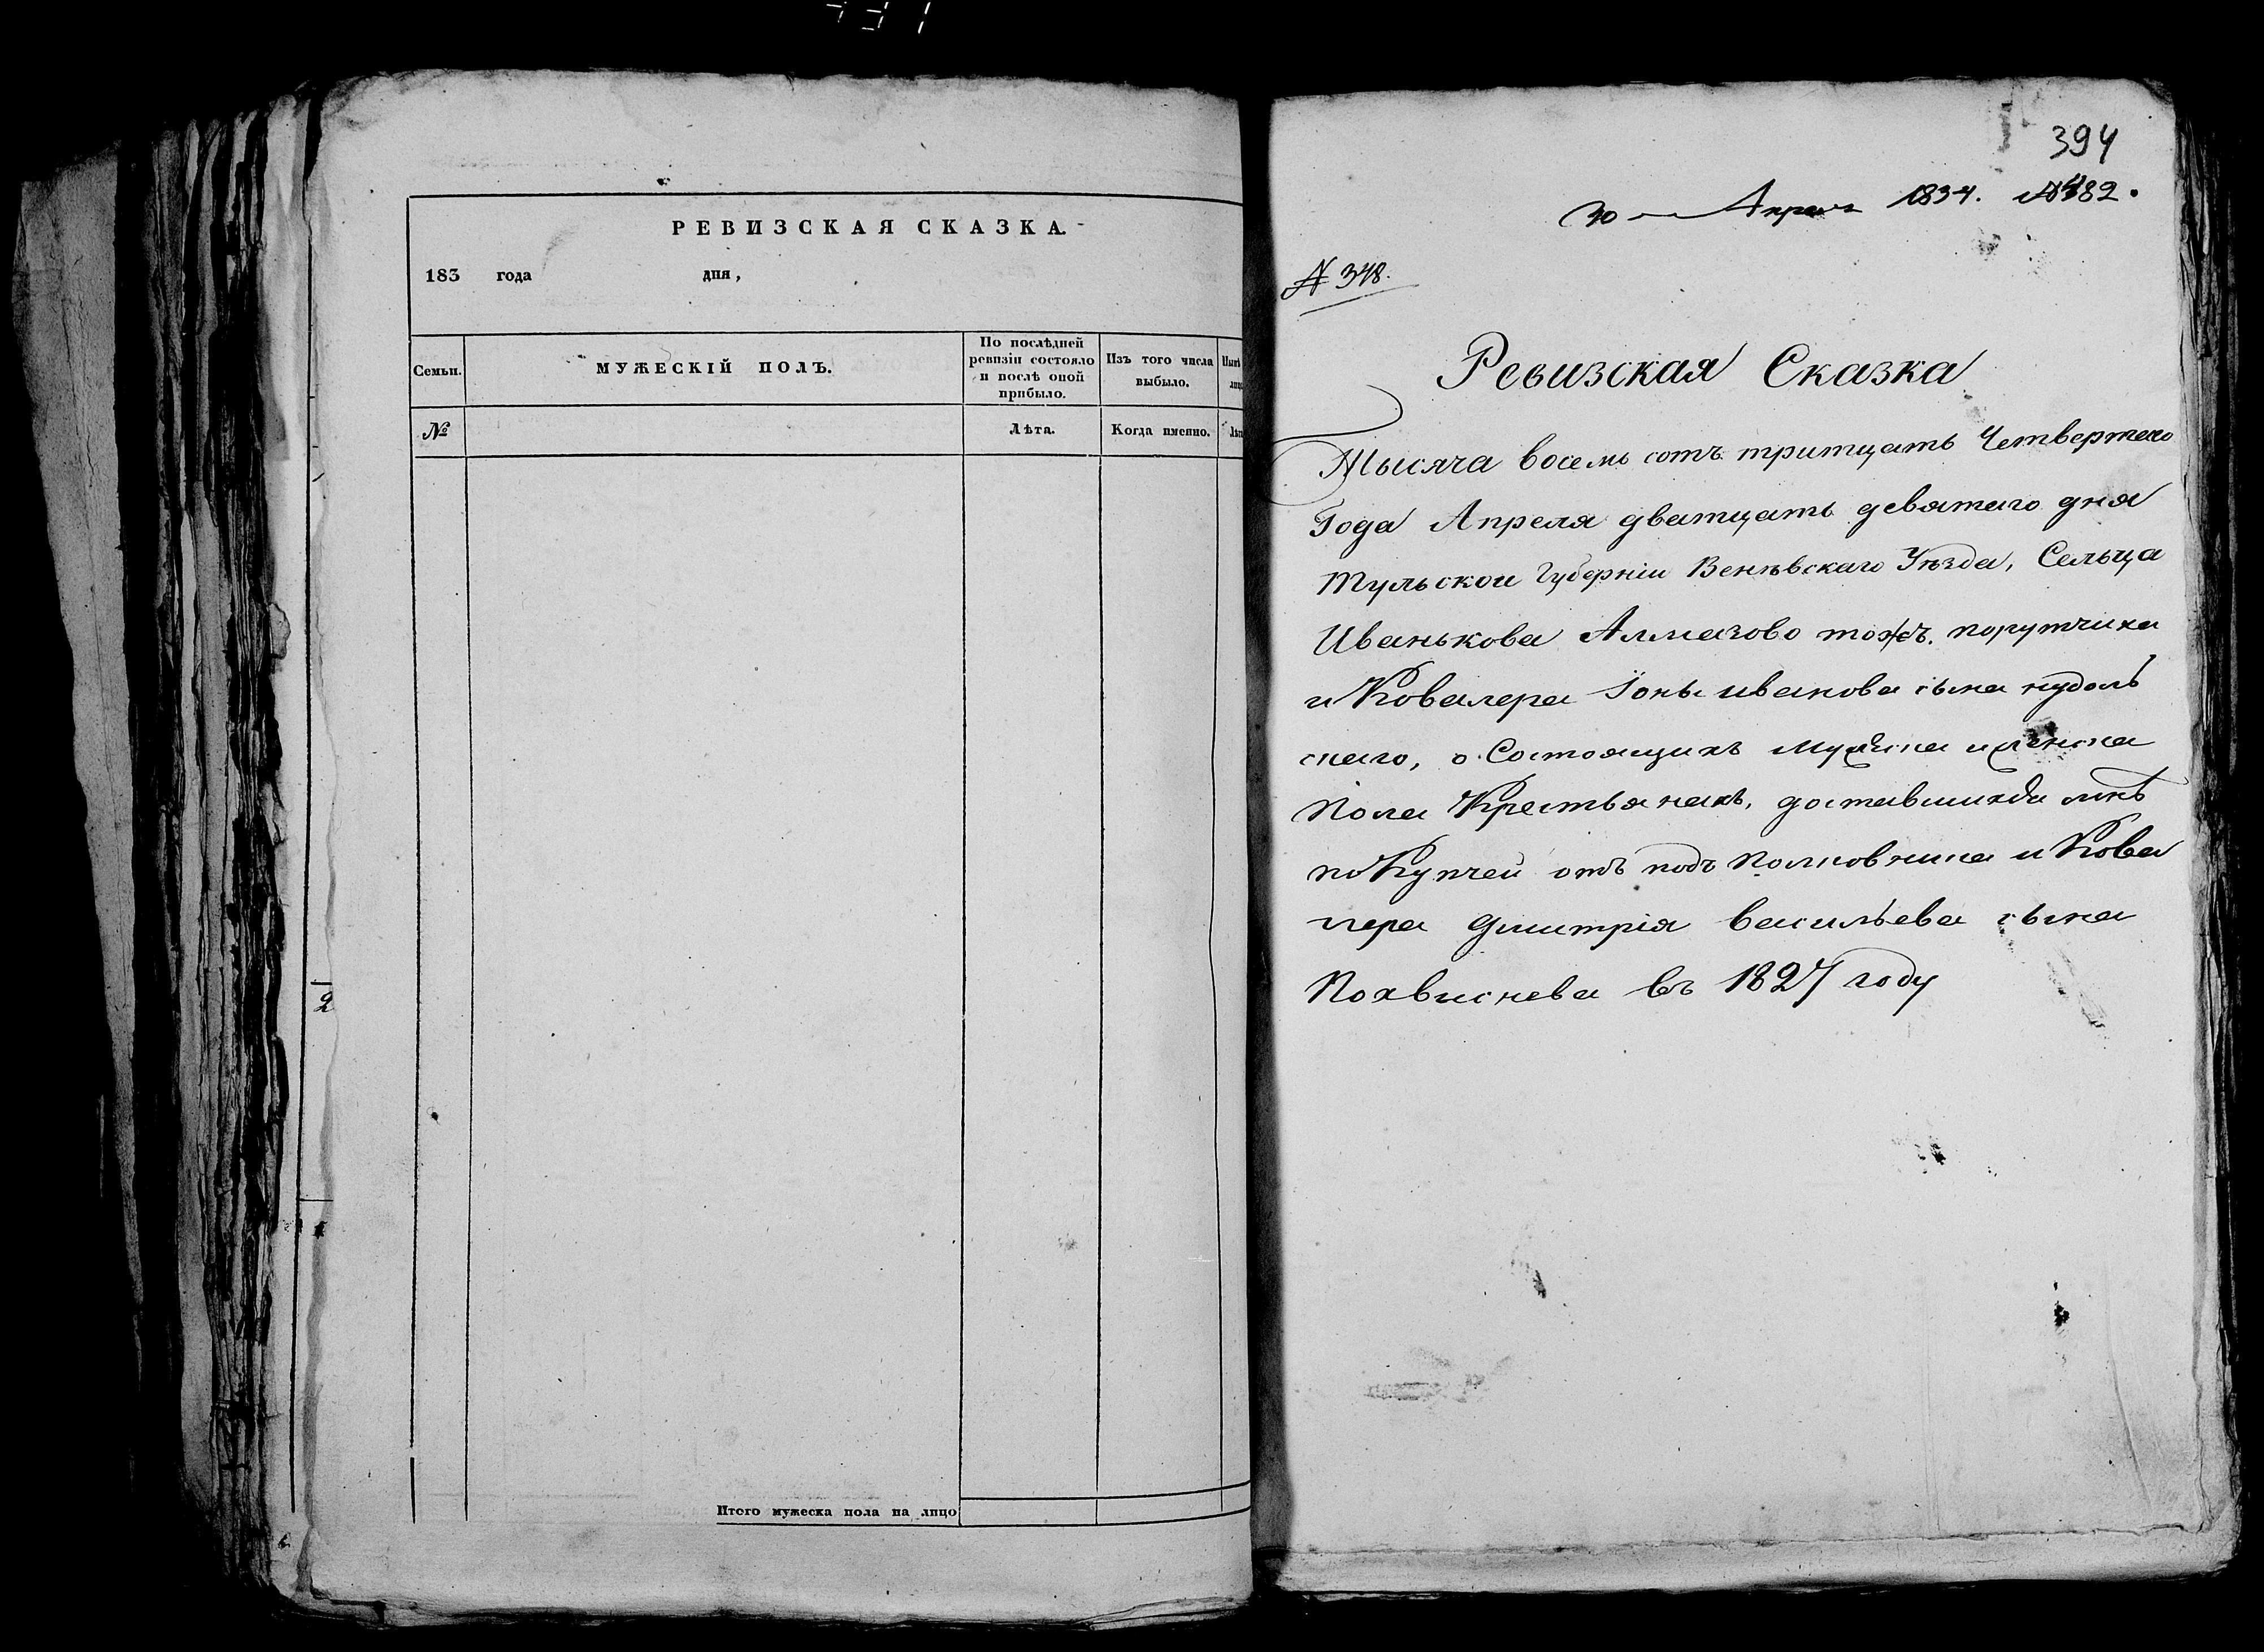 РЕВИЗСКАЯ СКАЗКА.
183 года дня,
Семьи.
МУЖЕСКІЙ ПОЛЪ.
По послѣдней
ревизіи состояло
и послѣ оной
прибыло.
Изъ того числа
выбыло.
№
Лѣта.
Когда именно.
Итого мужеска пола на лицо
2
394
30 Апреля 1834. №482.
№ 348.
Ревизская Сказка
Тысяча восемь сотъ тритцать Четвертаго
Года Апреля дватцать девятаго дня
Тульской Губерніи Венѣвскаго Уѣзда, Сельца
Иванькова Алмазово тожъ. порутчика
и Ковалера Іоны иванова сына
скаго, о Состоящихъ мужска и женска
Пола Крестьянахъ, доставшихся мнѣ
по Купчей отъ подъ Полковника и Кова
лера Дмитрія васильева сына
Похвиснева въ 1827 году